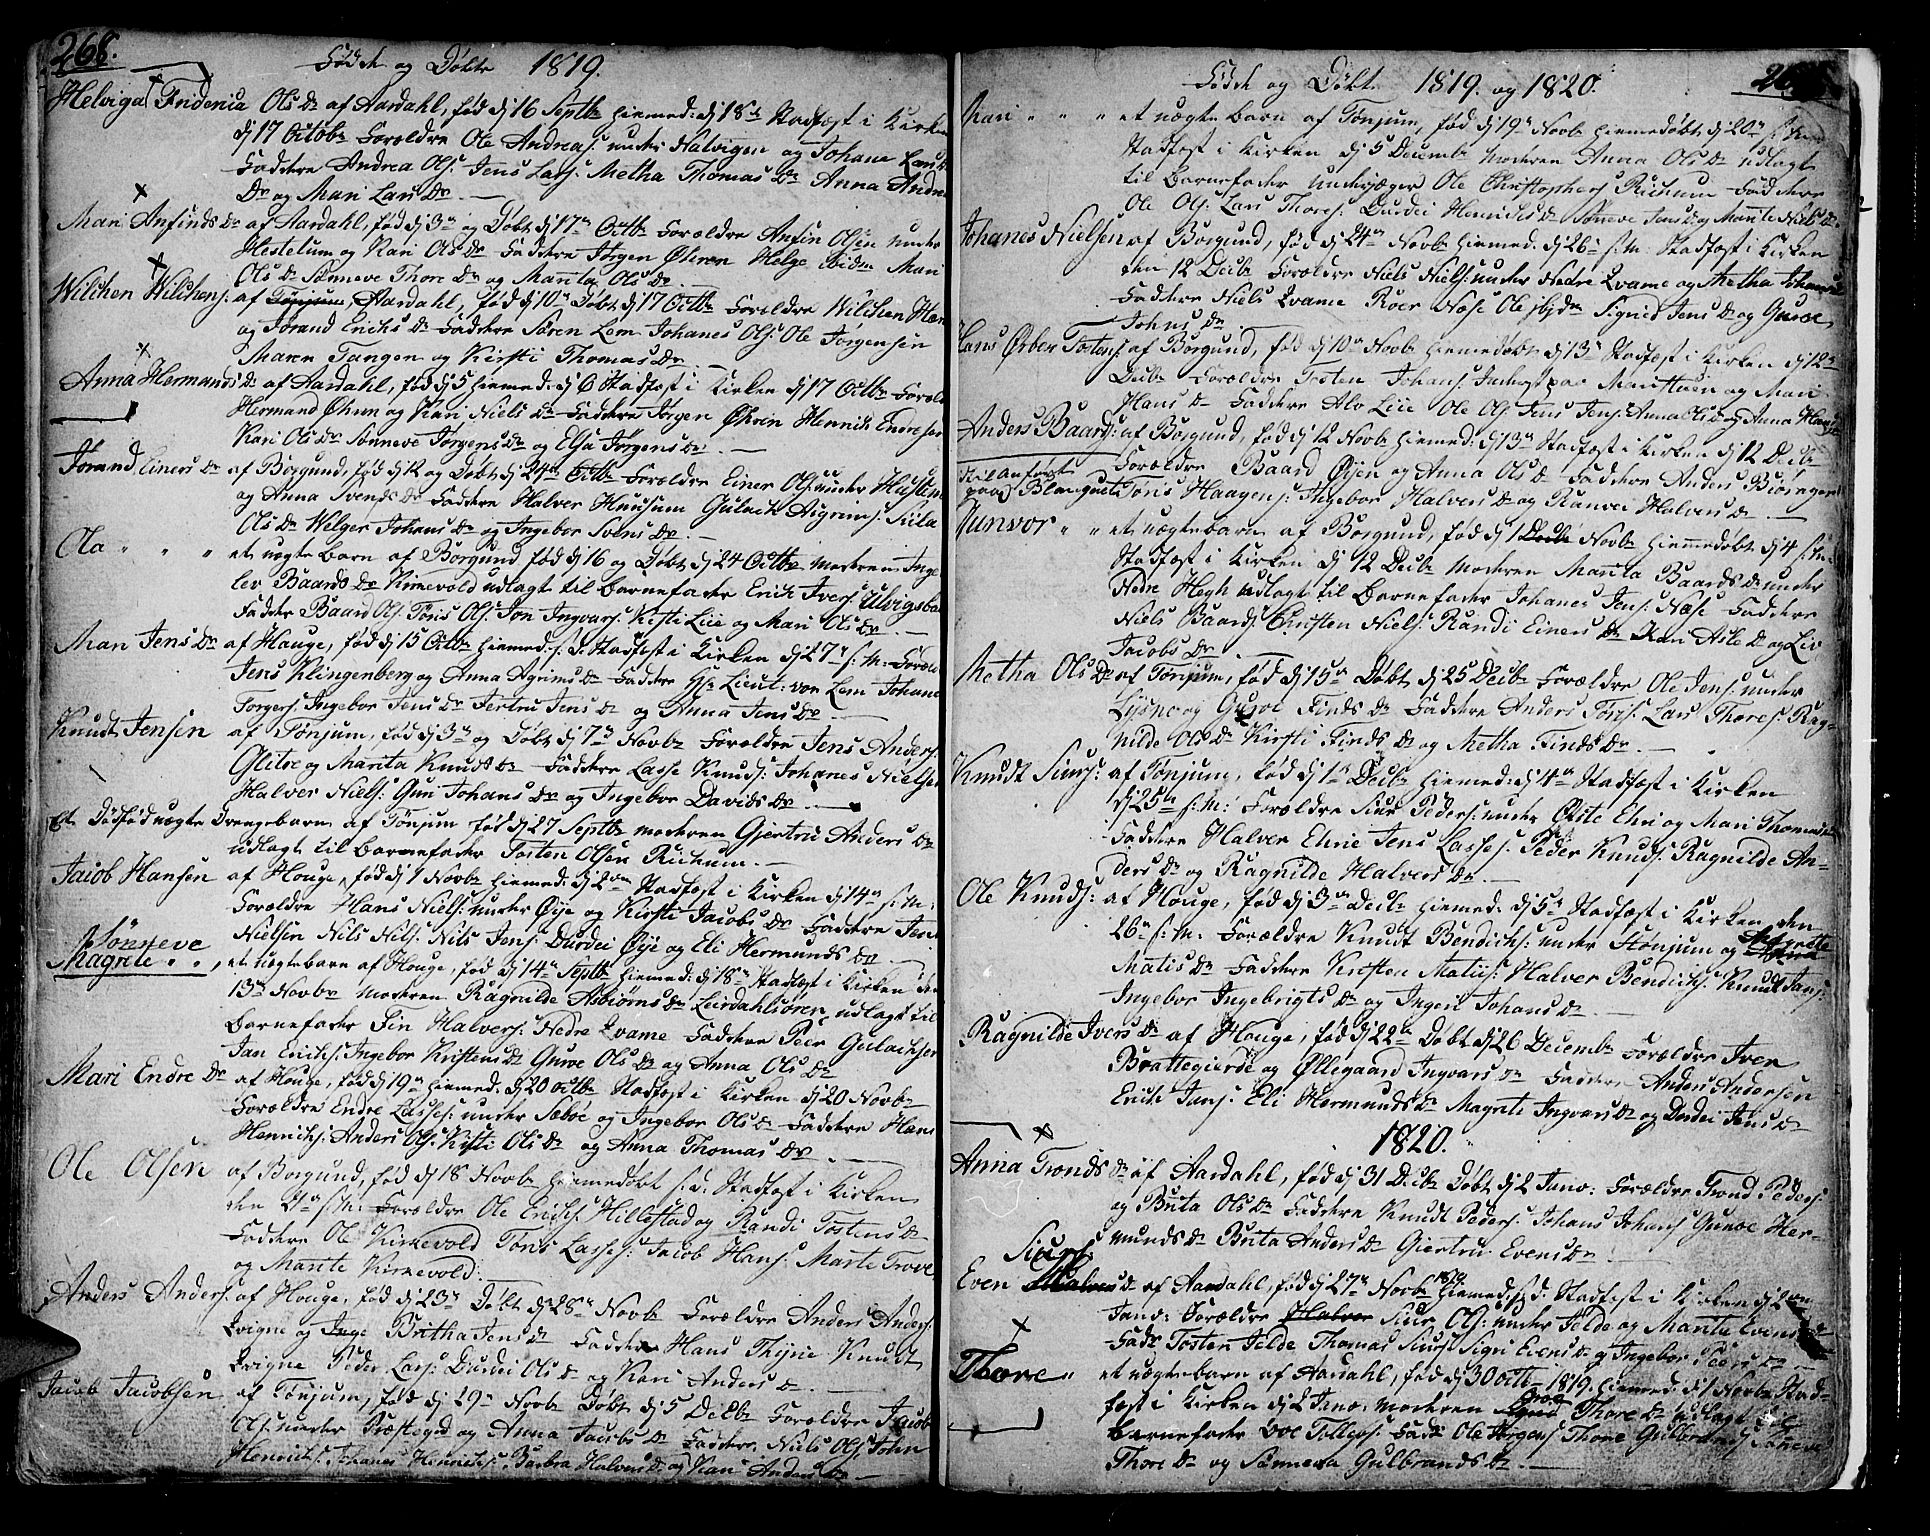 268.
Fødte og Døbte 1819.
Helviga Fridenia Ols Dr af Aardahl, fød dj 16 Septbr hiemed: dj 18de Stadfæst i Kirken
dj 17 Octobr Forældre Ole Andreas: under Halvigen og Johane Lars
Faddere Andrea Ols: Jens Lars: Metha Thomas Dr Anna Andrea
Dr og Mari Lars Dr
Mari Anfinds Dr af Aardahl, fød dj 3die og Døbt dj 17de Octbr Forældre Anfin Olsen under
Hestetum og Kari Ols Dr Faddere Jørgen Øhren Helge ibidm Mari
Ols Dr Sønneve Thore Dr og Mannta Ols Dr
Wilchen Wilchens: af Tønjum, Aardahl, fød dj 10de Døbt dj 17 Octbr Forældre Wilchen Han
og Jorand Erichs Dr Faddere Søren Lem Johanes Ols: Ole Jørgensen
Maren Tangen og Kirsti Thomas Dr
Anna Hermands Dr af Aardahl, fød dj 5 hiemed: dj 6 Stadfæst i Kirken dj 17 Octbr Foræld
Hermand Øhren og Kari Niels Dr Faddere Jørgen Øhren Henrik Endresen
Kari Ols Dr Sønneve Jørgens Dr og Elsa Jørgens Dr
Jorand Einers Dr af Borgund, fød dj 12 og Døbt dj 24de Octbr Forældre Einer Ols: under Hustum
og Anna Svends Dr Faddere Halver Huusum Gulach Aigrims: Siila
Ols Dr Welger Johans Dr og Ingebor Svens Dr
Ola " " " et uægte barn af Borgund fød dj 16 og Døbt dj 24 Octbr moderen Inge
lev Baards Dr Kirnevold udlagt til barnefader Erich Ivers: Ulvigsba
Fadder Baard Ols: Tøris Ols: Jon Ingvars: Kisti Liie og Mari Ols Dr
Mari Jens Dr af Hauge, fød dj 15 Octbr hiemed: s. D. Stadfæst i Kirken dj 17de s: M: Foræld
Jens Klingenberg og Anna Agrims Dr Faddere Hr Lieut: von Lem Johane
Torgers: Ingebor Jens Dr Jertru Jens Dr og Anna Jens Dr
Knudt Jensen af Tønjum, fød dj 3die og Døbt dj 7de Novbr Forældre Jens Anders:
Glitre og Marita Knuds Dr Faddere Lasse Knuds: Johanes Nielsen
Halver Niels: Gun Johans Dr og Ingebor Davids Dr
Et Dødfød uægte Drengebarn af Tønjum fød dj 27 Septbr moderen Gjertru Anders Dr
udlagt til barnefader Tosten Olsen Richum.
Jacob Hansen af Houge, fød dj 1 Novbr hiemed: dj 2den Stadfæst i Kirken dj 14de s: M:
Forældre Hans Niels: under Øije og Kirsti Jacobs Dr Faddere Jen
Nielsen Nils Nils: Nils Jens: Durdei Øije og Eli Hermunds Dr
Sønneve
Magrete " ", et uægte barn af Houge, fød dj 14de Septbr hiemed: dj 18de Stadfæst i Kirken den
13de Novbr moderen Ragnilde Asbiørns Dr Leirdahlsøren, udlagt til
Barnefader Fin Halvers: Nedre Qvame Faddere Peer Gulachsen
Jan Erichs: Ingebor Kristens Dr Guroe Ols Dr og Anna Ols Dr
Mari Endre Dr af Houge, fød dj 19de hiemed: dj 20 Octbr Stadfæst i Kirken dj 20 Novbr
Forældre Endre Lasses: under Sæbøe og Ingebor Ols Dr Faddere Hans
Henrichs: Anders Ols: Kisti Ols Dr og Anna Thomas Dr
Ole Olsen af Borgund, fød dj 18 Novbr hiemedøbt s. D. Stadfæst i Kirken
den 21de s: M: Forældre Ole Erichs: Hillestad og Randi Tostens Dr
Faddere Ole Kirnevold Tøris Lasses: Jacob Hans: Marte Trove
og Marite Kirnevold.
Anders Anders: af Houge, fød dj 23de Døbt dj 28de Novbr Forældre Anders Anders:
Qvigne og Inge Britha Jens Dr Faddere Hans Thijne Knudt
Qvigne Peder Lars: Durdei Ols Dr og Kari Anders Dr
Jacob Jacobsen af Tønjum, fød dj 29de Novbr Døbt dj 5 Decbr Forældre Jacob
Ols: under Præstegrd og Anna Jacobs Dr Faddere Niels Ols: John
Henrichs: Johanes Henrichs: Barbra Halvers Dr og Kari Anders Dr
Fødte og Døbt 1819. og 1820.
Kari " " " et uægte barn af Tønjum, fød dj 19de Novbr hiemedøbt dj 20de s: M:
Stadfæst i Kirken dj 5 Decembr moderen Anna Ols Dr udlagt
til barnefader underjæger Ole Christophers: Richum Faddere
Ole Ols: Lars Thores: Durdei Henrichs Dr Sønneve Jens Dr og Marite Niels Dr
Johanes Nielsen af Borgund, fød dj 24de Novbr hiemed: dj 26de s: M: Stadfæst i Kirken
den 12 Decbr Forældre Niels Niels: under Nedre Qvame og Metha Johans
Faddere Niels Qvame Roer Næse Ole ibidm Signed Jens Dr og Guroe
Johns Dr
Hans Ørben Tostens: af Borgund, fød dj 10de Novbr hiemedøbt dj 13de Stadfæst i Kirken dj 12te
Decbr Forældre Tosten Johans: Inderst paa Maristuen og Mari
Hans Dr Faddere Alv Liie Ole Ols: Jens Jens: Anna Ols Dr og Anna Haags Dr
Anders Baards: af Borgund, fød dj 12 Novbr hiemed: dj 13de Stadfæst i Kirken dj 12 Decbr
Forældre Baard Øijen og Anna Ols Dr Faddere Anders Biøringen
Tøris Haagens: Ingebor Halvers Dr og Ranvei Halvers Dr
Feilanført
paa Blanquet
Gunvor " " et uægtebarn af Borgund, fød dj 1 Decbr Novbr hiemmedøbt dj 4 s: M:
Stadfæst i Kirken dj 12 Decbr moderen Marita Baards Dr under
Nedre Hegh udlagt til Barnefader Johanes Jens: Næse Faddere
Niels Baards: Christen Niels: Randi Einers Dr Kari Asle Dr og Liv
Jacobs Dr
Metha Ols Dr af Tønjum, fød dj 15de Døbt dj 25 Decbr Forældre Ole Jens: under
Lysne og Guroe Finds Dr Faddere Anders Tøris: Lars Thores: Rag-
nilde Ols Dr Kirsti Finds Dr og Metha Finds Dr
Knudt Siurs: af Tønjum, fød dj 1ste Decbr hiemed: dj 4de Stadfæst i Kirken
dj 25de s: M: Forældre Siur Peders: under Øiste Ehri og Mari Thomas Dr
Faddere Halver Ehrie Jens Lasses: Peder Knuds: Ragnilde An-
ders Dr og Ragnilde Halvers Dr
Ole Knuds: af Houge, fød dj 3die Decbr hiemed: dj 5te Stadfæst i Kirken den
26de s: M: Forældre Knudt Bendichs: under Stønjum og Marite
Matis Dr Faddere Kristen Matis: Halver Bendichs: Knudt Jans:
Ingebor Ingebrigts Dr og Ingeri Johans Dr
Ragnilde Ivers Dr af Houge, fød dj 22de Døbt dj 26 Decembr Forældre Iver
Brattegierde og Øllegaard Ingvars Dr Faddere Anders Andersen
Erich Jans: Eli Hermunds Dr Magrete Ingvars Dr og Durdei Jens Dr
1820.
Anna Tronds Dr af Aardahl, fød dj 31 Decbr Døbt dj 2 Janv: Forældre Trond Peders:
og Brita Ols Dr Faddere Knudt Peders: Johans Johans: Guroe Her-
munds Dr Brita Anders Dr Giertru Evens Dr
Siurs:
Even Halvers Dr af Aardahl, fød dj 27de Novbr 1819. hiemed: s. D. Stadfæst i Kirken dj 2den
Janv: Forældre Halver Siur Ols: under Jelde og Marite Evens Dr
Faddr Tosten Jelde Thomas Siurs: Sigri Evens Dr og Ingebor Peers Dr
Thore " et uægtebarn af Aardahl, fød dj 30 Octbr 1819. hiemed: dj 1 Novbr Stad-
fæst i Kirken dj 2 Janv: moderen Thore Dr udlagt til
barnefader Boe Tollefs: Faddr Ole Jørgens: Thore Gulbrands: Sønneve
Thore Dr og Sønneva Gulbrands Dr